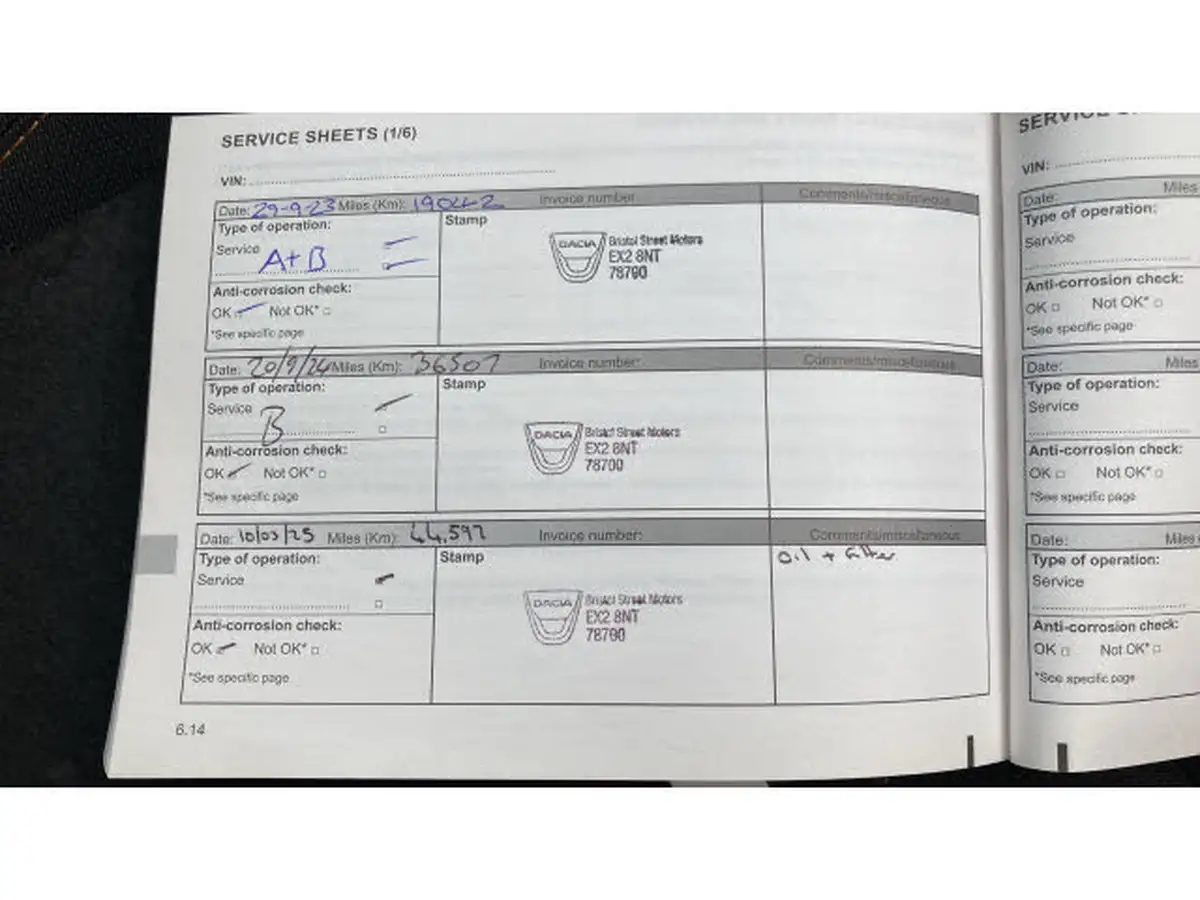 SERVICE SHEETS (1/6)
VIN:
Date: 29-9-23 Miles (Km): 19042 Invoice number
Comments/miscellaneous
Type of operation:
Service
A+B
Stamp
DACIA
Bristol Street Motors
EX2 8NT
78700
Anti-corrosion check:
OK Not OK*
*See specific page
Date: 20/9/24 Miles (Km): 36507 Invoice number:
Comments/miscellaneous
Type of operation:
Service
B
Stamp
DACIA
Bristol Street Motors
EX2 8NT
78700
Anti-corrosion check:
OK Not OK*
*See specific page
Date: 10/03/25 Miles (Km): 44,597 Invoice number:
Comments/miscellaneous
Type of operation:
Service
Stamp
DACIA
Bristol Street Motors
EX2 8NT
78700
Oil + filter
Anti-corrosion check:
OK Not OK*
*See specific page
6.14
VIN:
Date: Miles
Type of operation:
Service
Anti-corrosion check:
OK Not OK*
*See specific page
Date: Miles
Type of operation:
Service
Anti-corrosion check:
OK Not OK*
*See specific page
Date: Miles
Type of operation:
Service
Anti-corrosion check:
OK Not OK*
*See specific page